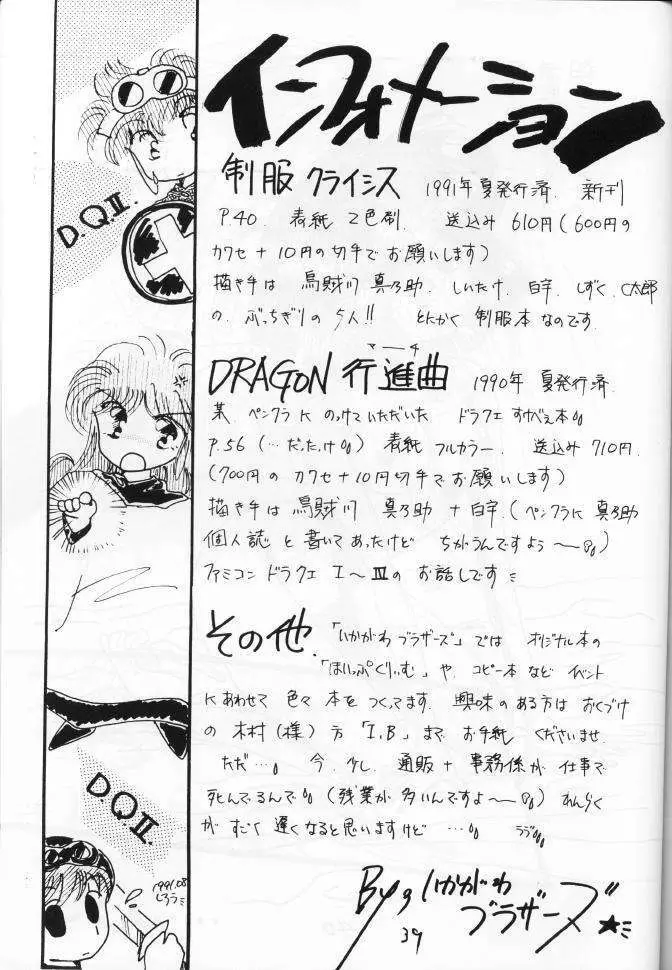 インフォメーション
制服 クライシス 1991年夏発行済. 新刊
P.40. 表紙 2色刷. 送込み 610円(600円の
カワセ+10円の切手でお願いします)
描き手は 烏賊川 真乃助. しいたけ. 白宇. しずく. C太郎
の. ぶっちぎりの5人!! とにかく 制服本なのです.
マーチ
DRAGON 行進曲 1990年 夏発行済.
某. ペンクラに のっけていただいた ドラクエ すけべぇ本。
P.56 (…だったっけ。) 表紙 フルカラー. 送込み 710円.
(700円の カワセ+10円切手でお願いします)
描き手は 烏賊川 真乃助 + 白宇. (ペンクラに 真乃助
個人誌 と 書いてあったけど ちがうんですよぅ〜。)
ファミコン ドラクエ I〜Ⅲの お話しです
その他. 「いかがわ ブラザーズ」では オリジナル本の
「ほいっぷくりぃむ」や. コピー本など イベント
にあわせて 色々 本をつくってます. 興味のある方は おくづけ
の 木村(様)方 「I.B」まで お手紙 くださいませ.
ただ…。 今. 少し. 通販+事務係が 仕事で
死んでるんで。(残業が 多いんですよ〜。) れんらく
が すごく 遅くなると思いますけど …。
By いかがわ
ブラザーズ★
39
D.Q.Ⅱ.
D.Q.Ⅱ.
1991.08
しろう